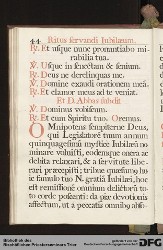 44 Ritus servandi Jubilæum.
R. Et usque nunc pronuntiabo mi-
rabilia tua.
V. Usque in senectam & senium.
R. Deus ne derelinquas me.
V. Domine exaudi orationem meã.
R. Et clamor meus ad te veniat.
Et D. Abbas subdit
V. Dominus vobiscum.
R. Et cum Spiritu tuo. Oremus.
Omnipotens sempiterne Deus,
qui Legislatorê tuum annum
quinquagesimũ mysticè Jubilæũ no-
minare voluisti, eodemque onera ac
debita relaxari, & a servitute libe-
rari præcepisti; tribue quæsumus hu-
ic famulo tuo N. gratiã Jubilæi, hoc
est remissionẽ omnium delictorũ to-
to corde poscenti: da piæ devotionis
affectum, ut a peccatis omnibq absol-
Bibliothek des
Bischöflichen Priesterseminars Trier
DFG